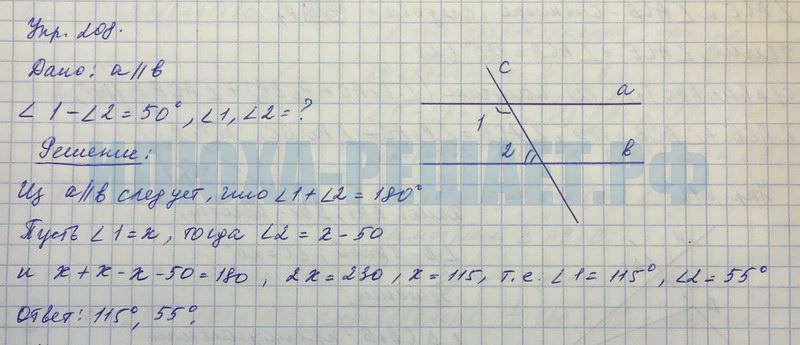 Упр. 208.
Дано: a∥b
∠1-∠2=50°, ∠1, ∠2=?
Решение:
Из a∥b следует, что ∠1+∠2=180°
Пусть ∠1=x, тогда ∠2=x-50
и x+x-x-50=180, 2x=230, x=115, т.е. ∠1=115°, ∠2=55°
Ответ: 115°, 55°.
c
a
1
2
b
-РЕШАЕТ.РФ